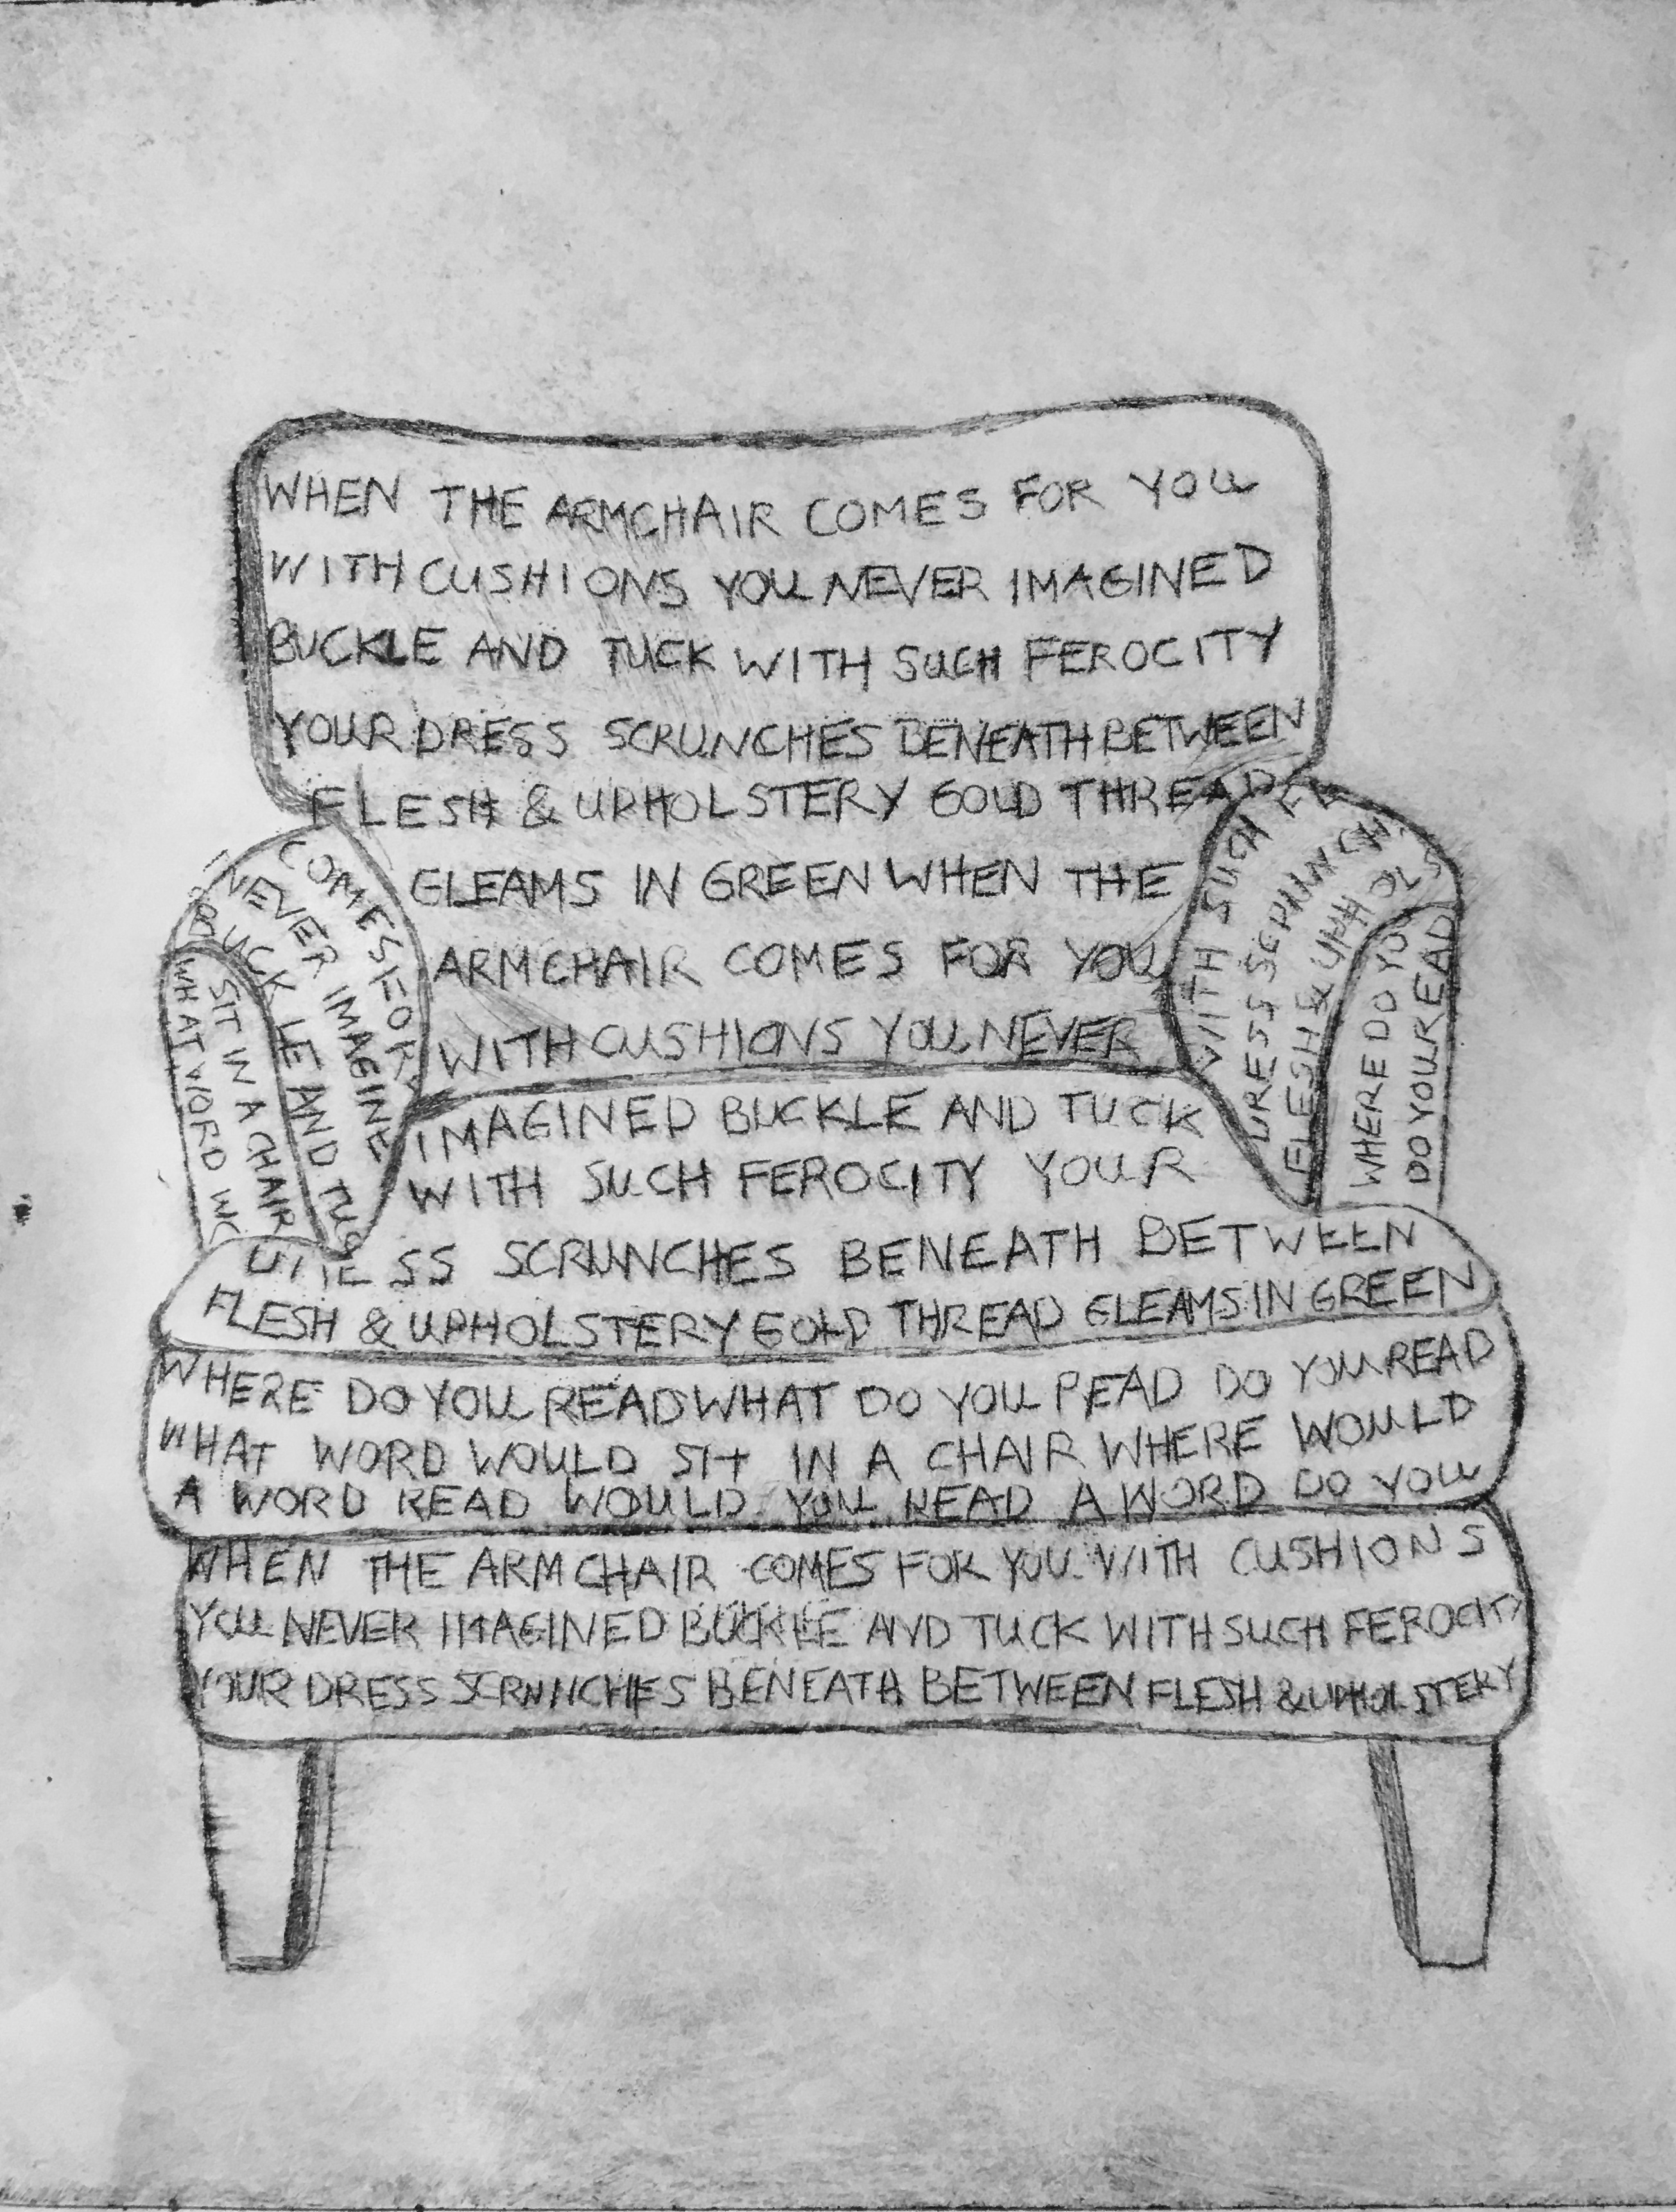 WHEN THE ARMCHAIR COMES FOR YOU
WITH CUSHIONS YOU NEVER IMAGINED
BUCKLE AND TUCK WITH SUCH FEROCITY
YOUR DRESS SCRUNCHES BENEATH BETWEEN
FLESH & UPHOLSTERY GOLD THREAD
GLEAMS IN GREEN WHEN THE
ARMCHAIR COMES FOR YOU
WITH CUSHIONS YOU NEVER
IMAGINED BUCKLE AND TUCK
WITH SUCH FEROCITY YOUR
SS SCRUNCHES BENEATH BETWEEN
FLESH & UPHOLSTERY GOLD THREAD GLEAMS IN GREEN
COMES FOR
NEVER IMAGINE
BUCKLE AND TUC
SIT IN A CHAIR
WHAT WORD WO
WITH SUCH FE
DRESS SCRUNCH
FLESH & UPHOLS
WHERE DO YOU
DO YOU READ
WHERE DO YOU READ WHAT DO YOU READ DO YOU READ
WHAT WORD WOULD SIT IN A CHAIR WHERE WOULD
A WORD READ WOULD YOU READ A WORD DO YOU
WHEN THE ARMCHAIR COMES FOR YOU WITH CUSHIONS
YOU NEVER IMAGINED BUCKLE AND TUCK WITH SUCH FEROCITY
YOUR DRESS SCRUNCHES BENEATH BETWEEN FLESH & UPHOLSTERY